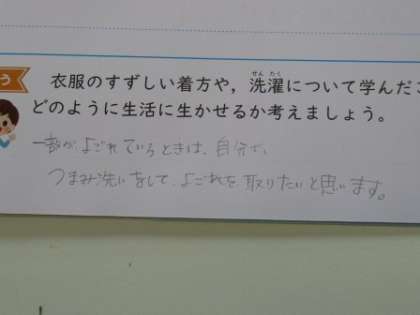 う
衣服のすずしい着方や，洗濯について学んだこ
どのように生活に生かせるか考えましょう。
一部が、よごれているときは、自分で、
つまみ洗いをして、よごれを取りたいと思います。